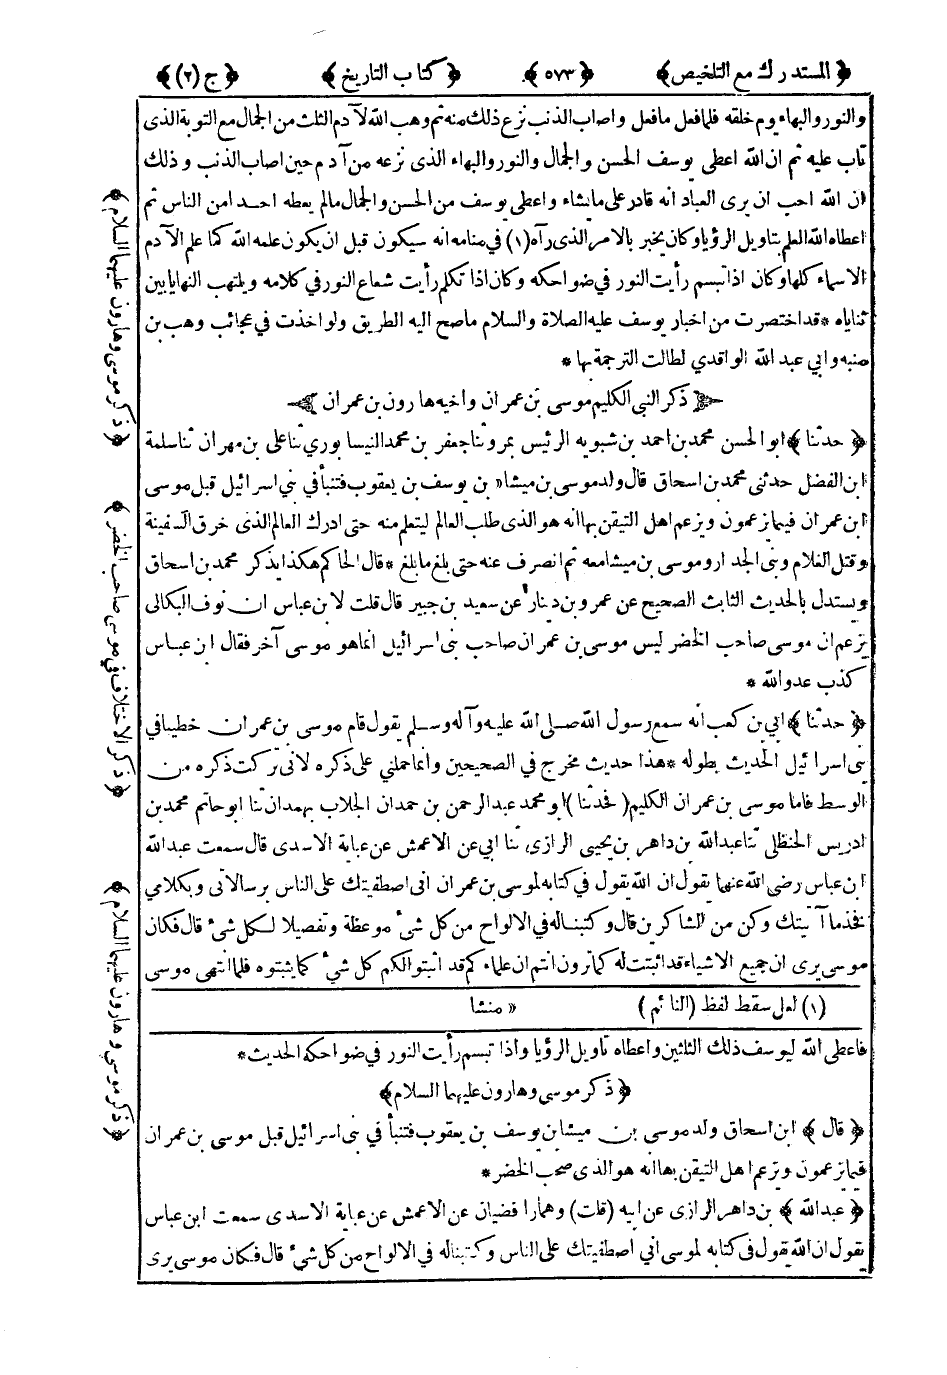 ﴿المستدرك مع التلخيص﴾ ﴿٥٧٣﴾ ﴿كتاب التاريخ﴾ ﴿ج (٢)﴾
والنور والبهاء يوم خلقه فلما فعل ما فعل واصاب الذنب نزع ذلك منه ثم وهب الله لآدم الثلث من الجمال مع التوبة الذى
تاب عليه ثم ان الله اعطى يوسف الحسن والجمال والنور والبهاء الذى نزعه من آدم حين اصاب الذنب وذلك
ان الله احب ان يرى العباد انه قادر على ما يشاء واعطى يوسف من الحسن والجمال مالم يعطه احدا من الناس ثم
اعطاه الله العلم بتاويل الرؤيا وكان يخبر بالامر الذى رآه (١) في منامه انه سيكون قبل ان يكون علمه الله كما علم الآدم
الاسماء كلها وكان اذا تبسم رأيت النور في ضواحكه وكان اذا تكلم رأيت شعاع النور في كلامه ويلتهب التهابا بين
ثناياه * قد اختصرت من اخبار يوسف عليه الصلاة والسلام ماصح اليه الطريق ولو اخذت في عجائب وهب بن
منبه وابي عبد الله الواقدي لطالت الترجمة بها *
ذكر النبي الكليم موسى بن عمران واخيه هارون بن عمران
﴿حدثنا﴾ ابو الحسن محمد بن احمد بن شبويه الرئيس بمرو ثنا جعفر بن محمد النيسابوري ثنا على بن مهران ثنا سلمة
ابن الفضل حدثنى محمد بن اسحاق قال ولد موسى بن ميشا« بن يوسف بن يعقوب فتنبأ في بني اسرائيل قبل موسى
ابن عمران فيما يزعمون ويزعم اهل التيقن بها انه هو الذى طلب العالم ليتعلم منه حتى ادرك العالم الذى خرق السفينة
وقتل الغلام وبنى الجدار وموسى بن ميشا معه ثم انصرف عنه حتى بلغ ما بلغ * قال الحاكم هكذا يذكر محمد بن اسحاق
ويستدل بالحديث الثابت الصحيح عن عمرو بن دينار عن سعيد بن جبير قال قلت لابن عباس ان نوف البكالى
يزعم ان موسى صاحب الخضر ليس موسى بن عمران صاحب بني اسرائيل انما هو موسى آخر فقال ابن عباس
كذب عدو الله *
﴿حدثنا﴾ ابي بن كعب انه سمع رسول الله صلى الله عليه وآله وسلم يقول قام موسى بن عمران خطيبا في
بني اسرائيل الحديث بطوله * هذا حديث مخرج في الصحيحين وانما حملني على ذكره لانى تركت ذكره من
الوسط فاما موسى بن عمران الكليم (فحدثنا) ابو محمد عبد الرحمن بن حمدان الجلاب بهمدان ثنا ابو حاتم محمد بن
ادريس الحنظلي ثنا عبد الله بن داهر بن يحيى الرازى ثنا ابي عن الاعمش عن عباية الاسدى قال سمعت عبد الله
ابن عباس رضى الله عنهما يقول ان الله يقول في كتابه لموسى بن عمران انى اصطفيتك على الناس برسالاتى وبكلامي
فخذ ما آتيتك وكن من الشاكرين قال وكتبنا له في الالواح من كل شئ موعظة وتفصيلا لكل شئ قال فكان
موسى يرى ان جميع الاشياء قد اثبتت له كما ترون انتم ان علماءكم قد اثبتوا لكم كل شئ كما يثبتوه فلما انتهى موسى
(١) لعل سقط لفظ (النائم) « منشا
فاعطى الله ليوسف ذلك الثلثين واعطاه تاويل الرؤيا واذا تبسم رأيت النور في ضواحكه الحديث *
﴿ذكر موسى وهارون عليهما السلام﴾
﴿قال﴾ ابن اسحاق ولد موسى بن ميشا بن يوسف بن يعقوب فتنبأ في بنى اسرائيل قبل موسى بن عمران
فيما يزعمون ويزعم اهل التيقن بها انه هو الذى صحب الخضر *
﴿عبد الله﴾ بن داهر الرازى عن ابيه (قلت) وهما رافضيان عن الاعمش عن عباية الاسدى سمعت ابن عباس
يقول ان الله يقول في كتابه لموسى اني اصطفيتك على الناس وكتبنا له في الالواح من كل شئ قال فكان موسى يرى
﴿ذكر موسى وهارون عليهما السلام﴾
﴿ذكر الاختلاف في موسى صاحب الخضر﴾
﴿ذكر موسى وهارون عليهما السلام﴾